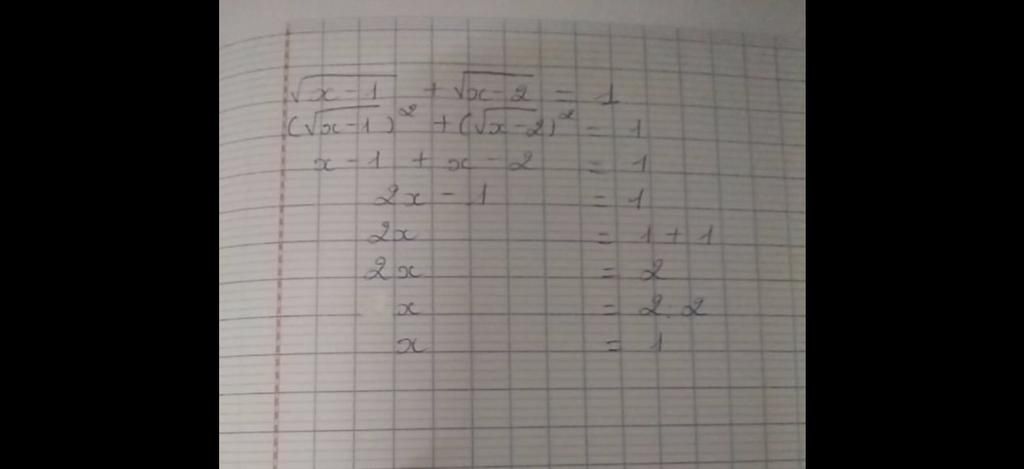 √(x-1) + √(x-2) = 1
(√(x-1))² + (√(x-2))² = 1
x - 1 + x - 2 = 1
2x - 1 = 1
2x = 1 + 1
2x = 2
x = 2.2
x = 1